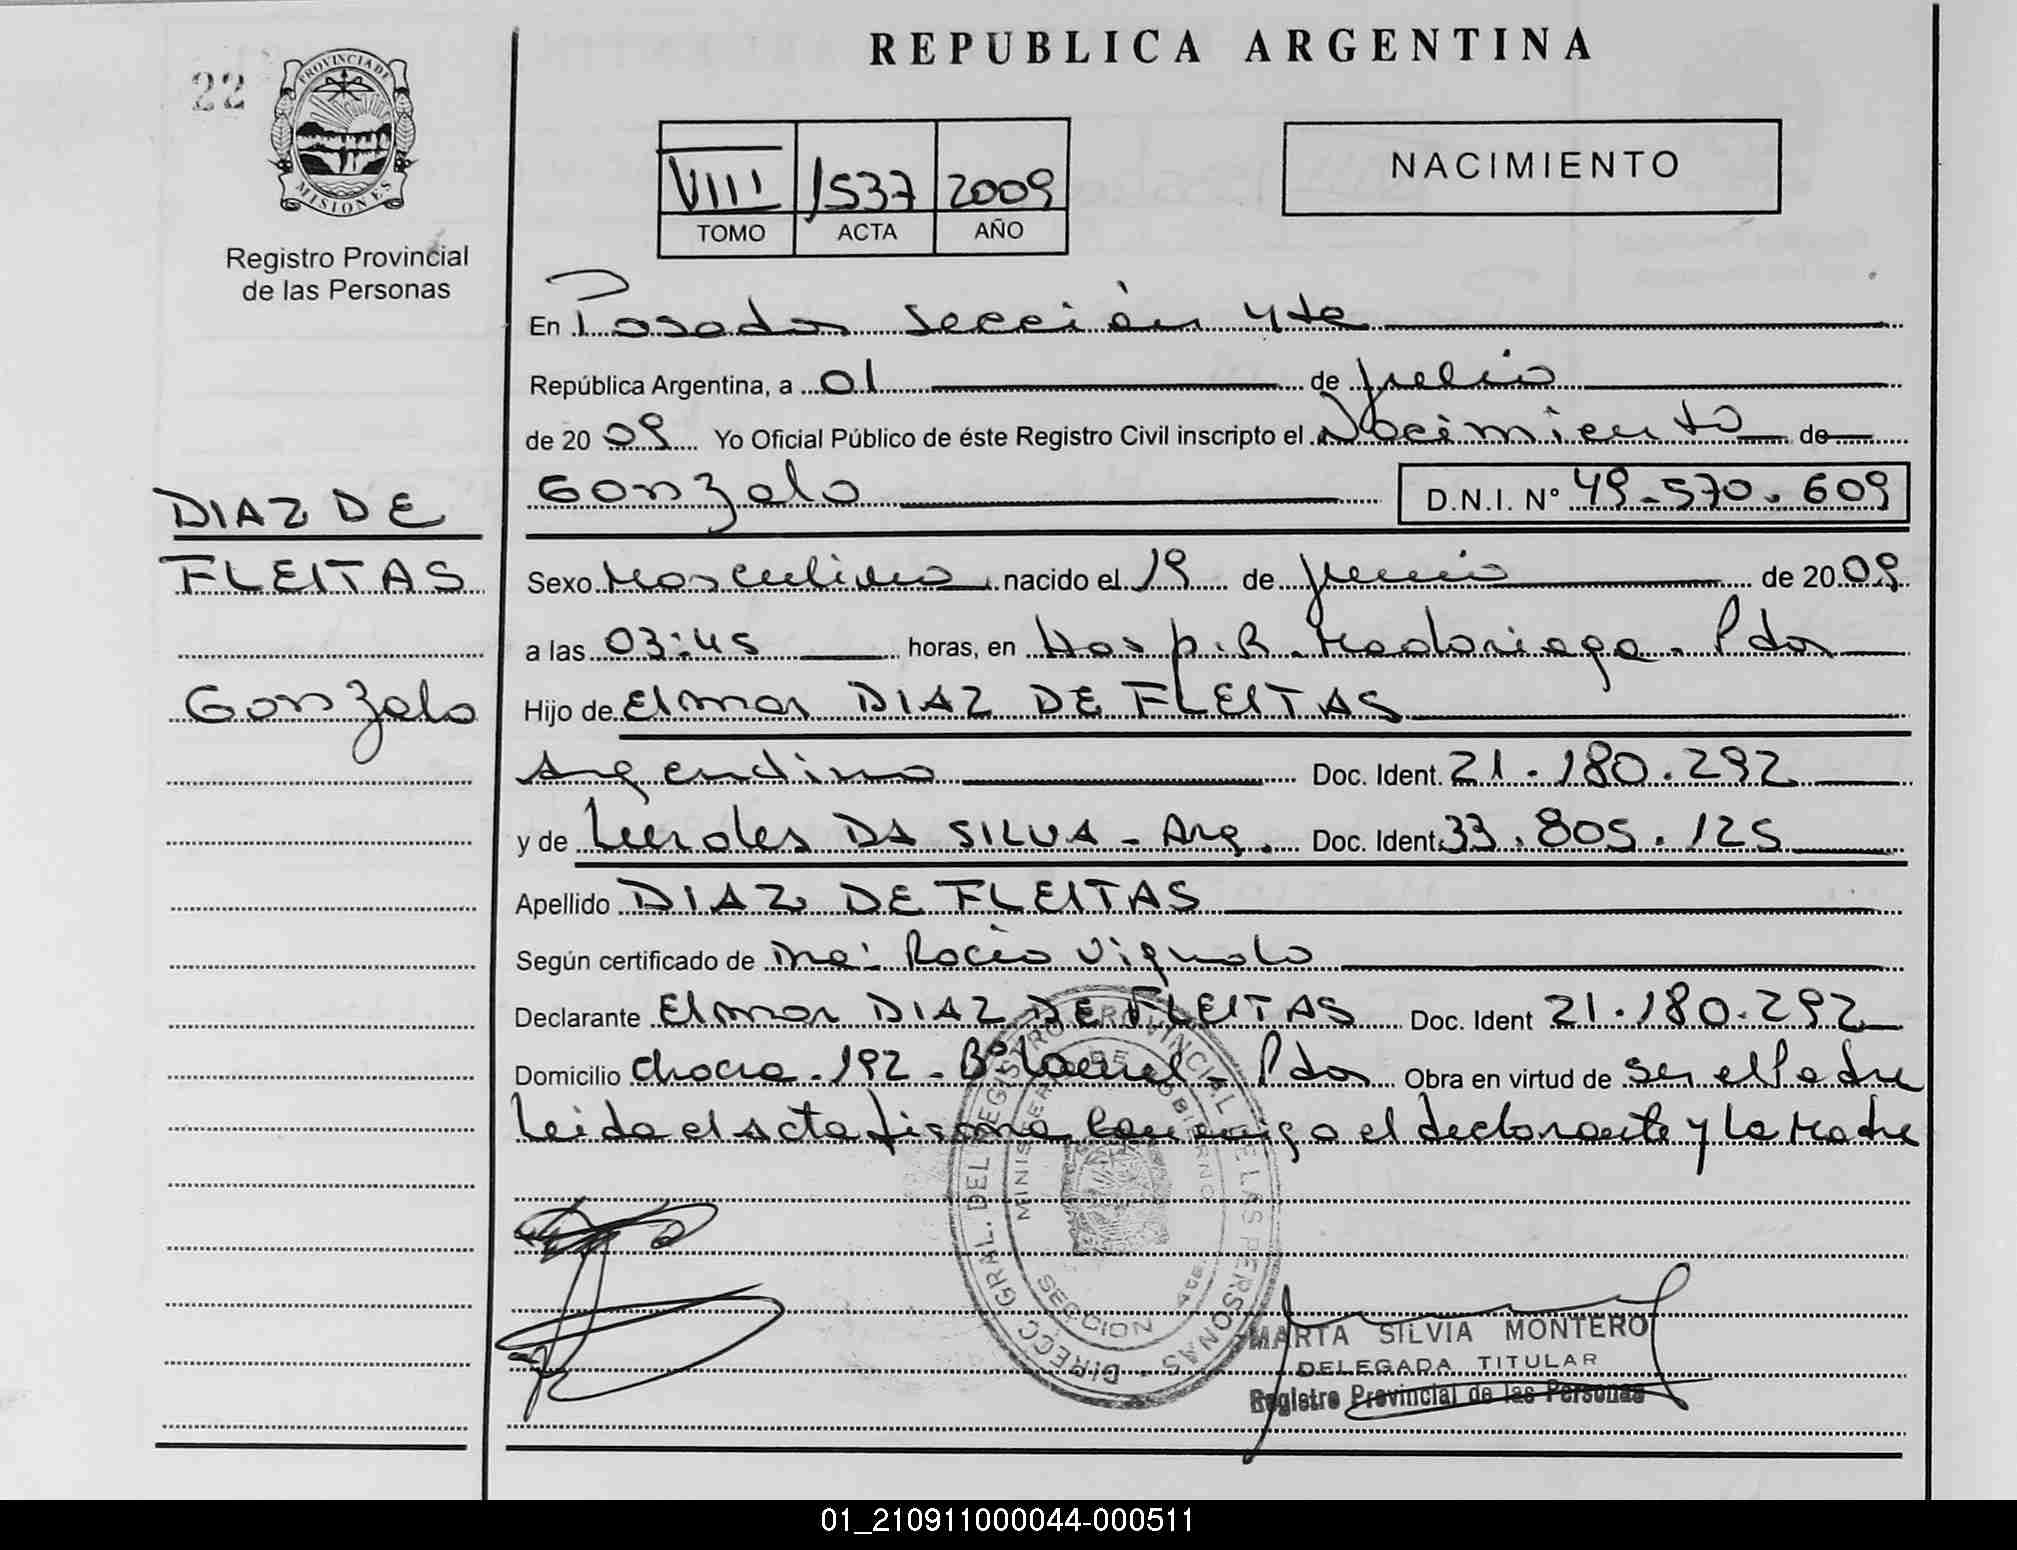 REPUBLICA ARGENTINA
22
PROVINCIA DE
MISIONES
Registro Provincial
de las Personas
VIII 1537 2009
TOMO ACTA AÑO
NACIMIENTO
En Posadas Sección 4ta
República Argentina, a 01 de julio
de 20 09 Yo Oficial Público de éste Registro Civil inscripto el Nacimiento de
Gonzalo D.N.I. Nº 49.570.609
DIAZ DE
FLEITAS
Gonzalo
Sexo Masculino nacido el 19 de junio de 20 09
a las 03:45 horas, en Hosp. R. Madariaga - Pdas
Hijo de Elmar DIAZ DE FLEITAS
Argentino Doc. Ident. 21.180.292
y de Lurdes DA SILVA - Arg. Doc. Ident. 33.805.125
Apellido DIAZ DE FLEITAS
Según certificado de Rocío Vignolo
Declarante Elmar DIAZ DE FLEITAS Doc. Ident 21.180.292
Domicilio chacra - 192 - Bº Laurel - Pdas Obra en virtud de ser el Padre
Leida el acta firma conmigo el declarante y la Madre
DIRECC GRAL. DEL REGISTRO PROVINCIAL DE LAS PERSONAS
MINISTERIO DE GOBIERNO
SECCION 4ta.
MARTA SILVIA MONTERO
DELEGADA TITULAR
Registro Provincial de las Personas
01_210911000044-000511